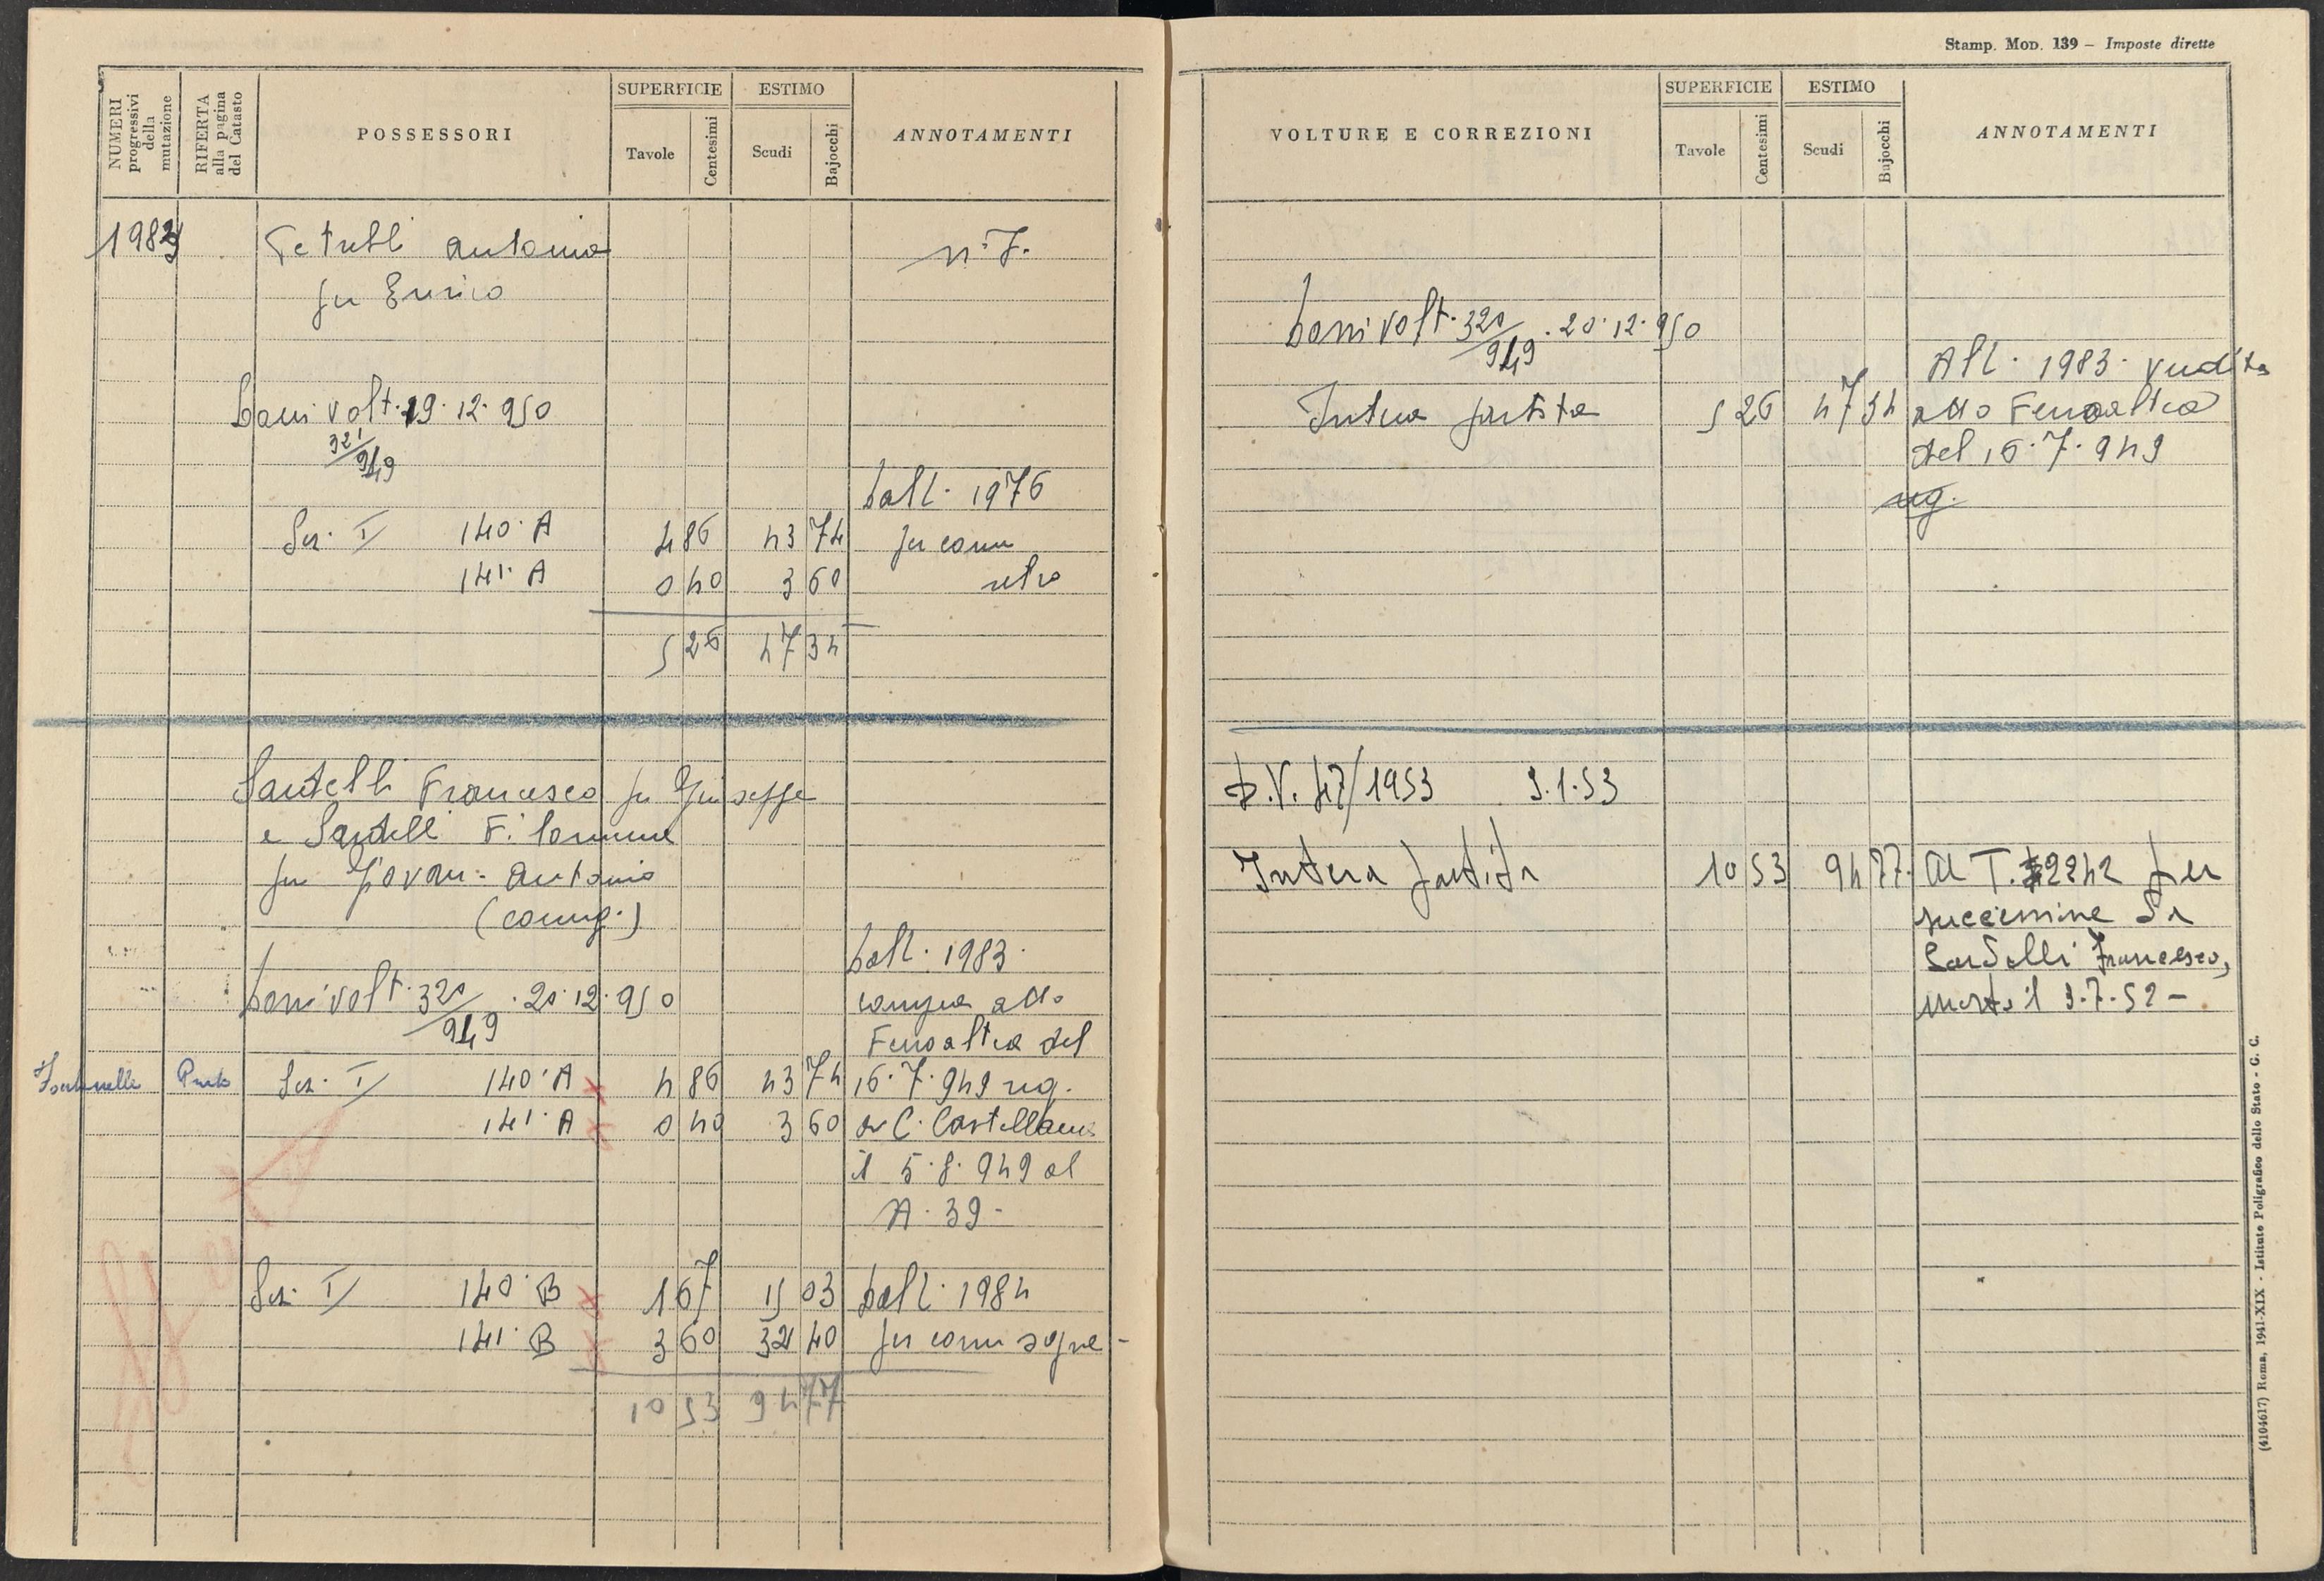 Stamp. Mod. 139 – Imposte dirette
NUMERI progressivi della mutazione
RIFERTA alla pagina del Catasto
POSSESSORI
SUPERFICIE
Tavole
Centesimi
ESTIMO
Scudi
Bajocchi
ANNOTAMENTI
1983 Petrilli Antonio n. 7.
fu Enrico
Dom volt. 19.12.950
321/949
Dall. 1976
Sez. I 140. A 4 86 43 74 per com
141. A 0 40 3 60 retro
5 26 47 34
Sardelli Francesco fu Giuseppe
e Sardelli Filomena
fu Giovan. Antonio
(coniug.)
Dall. 1983.
Dom volt. 320/949 . 20.12.950 compra atto
Ferroaltea del
Sez. I 140. A 4 86 43 74 16.7.949 reg.
141. A 0 40 3 60 a C. Castellana
il 5.8.949 al
N. 39-
Sez. I 140. B 1 67 15 03 Dall. 1984
141. B 3 60 32 40 per com sopra-
10 53 94 77
VOLTURE E CORREZIONI
SUPERFICIE
Tavole
Centesimi
ESTIMO
Scudi
Bajocchi
ANNOTAMENTI
Dom volt. 320/949 . 20.12.950
All. 1983. vendita
Intera partita 5 26 47 34 atto Ferroaltea
del 16.7.949
reg.
D.V. 47/1953 9.1.53
Intera partita 10 53 94 77 Al T. 2242 per
successione di
Sardelli Francesco,
morto il 3.7.52 –
(4104617) Roma, 1941-XIX - Istituto Poligrafico dello Stato - G. C.